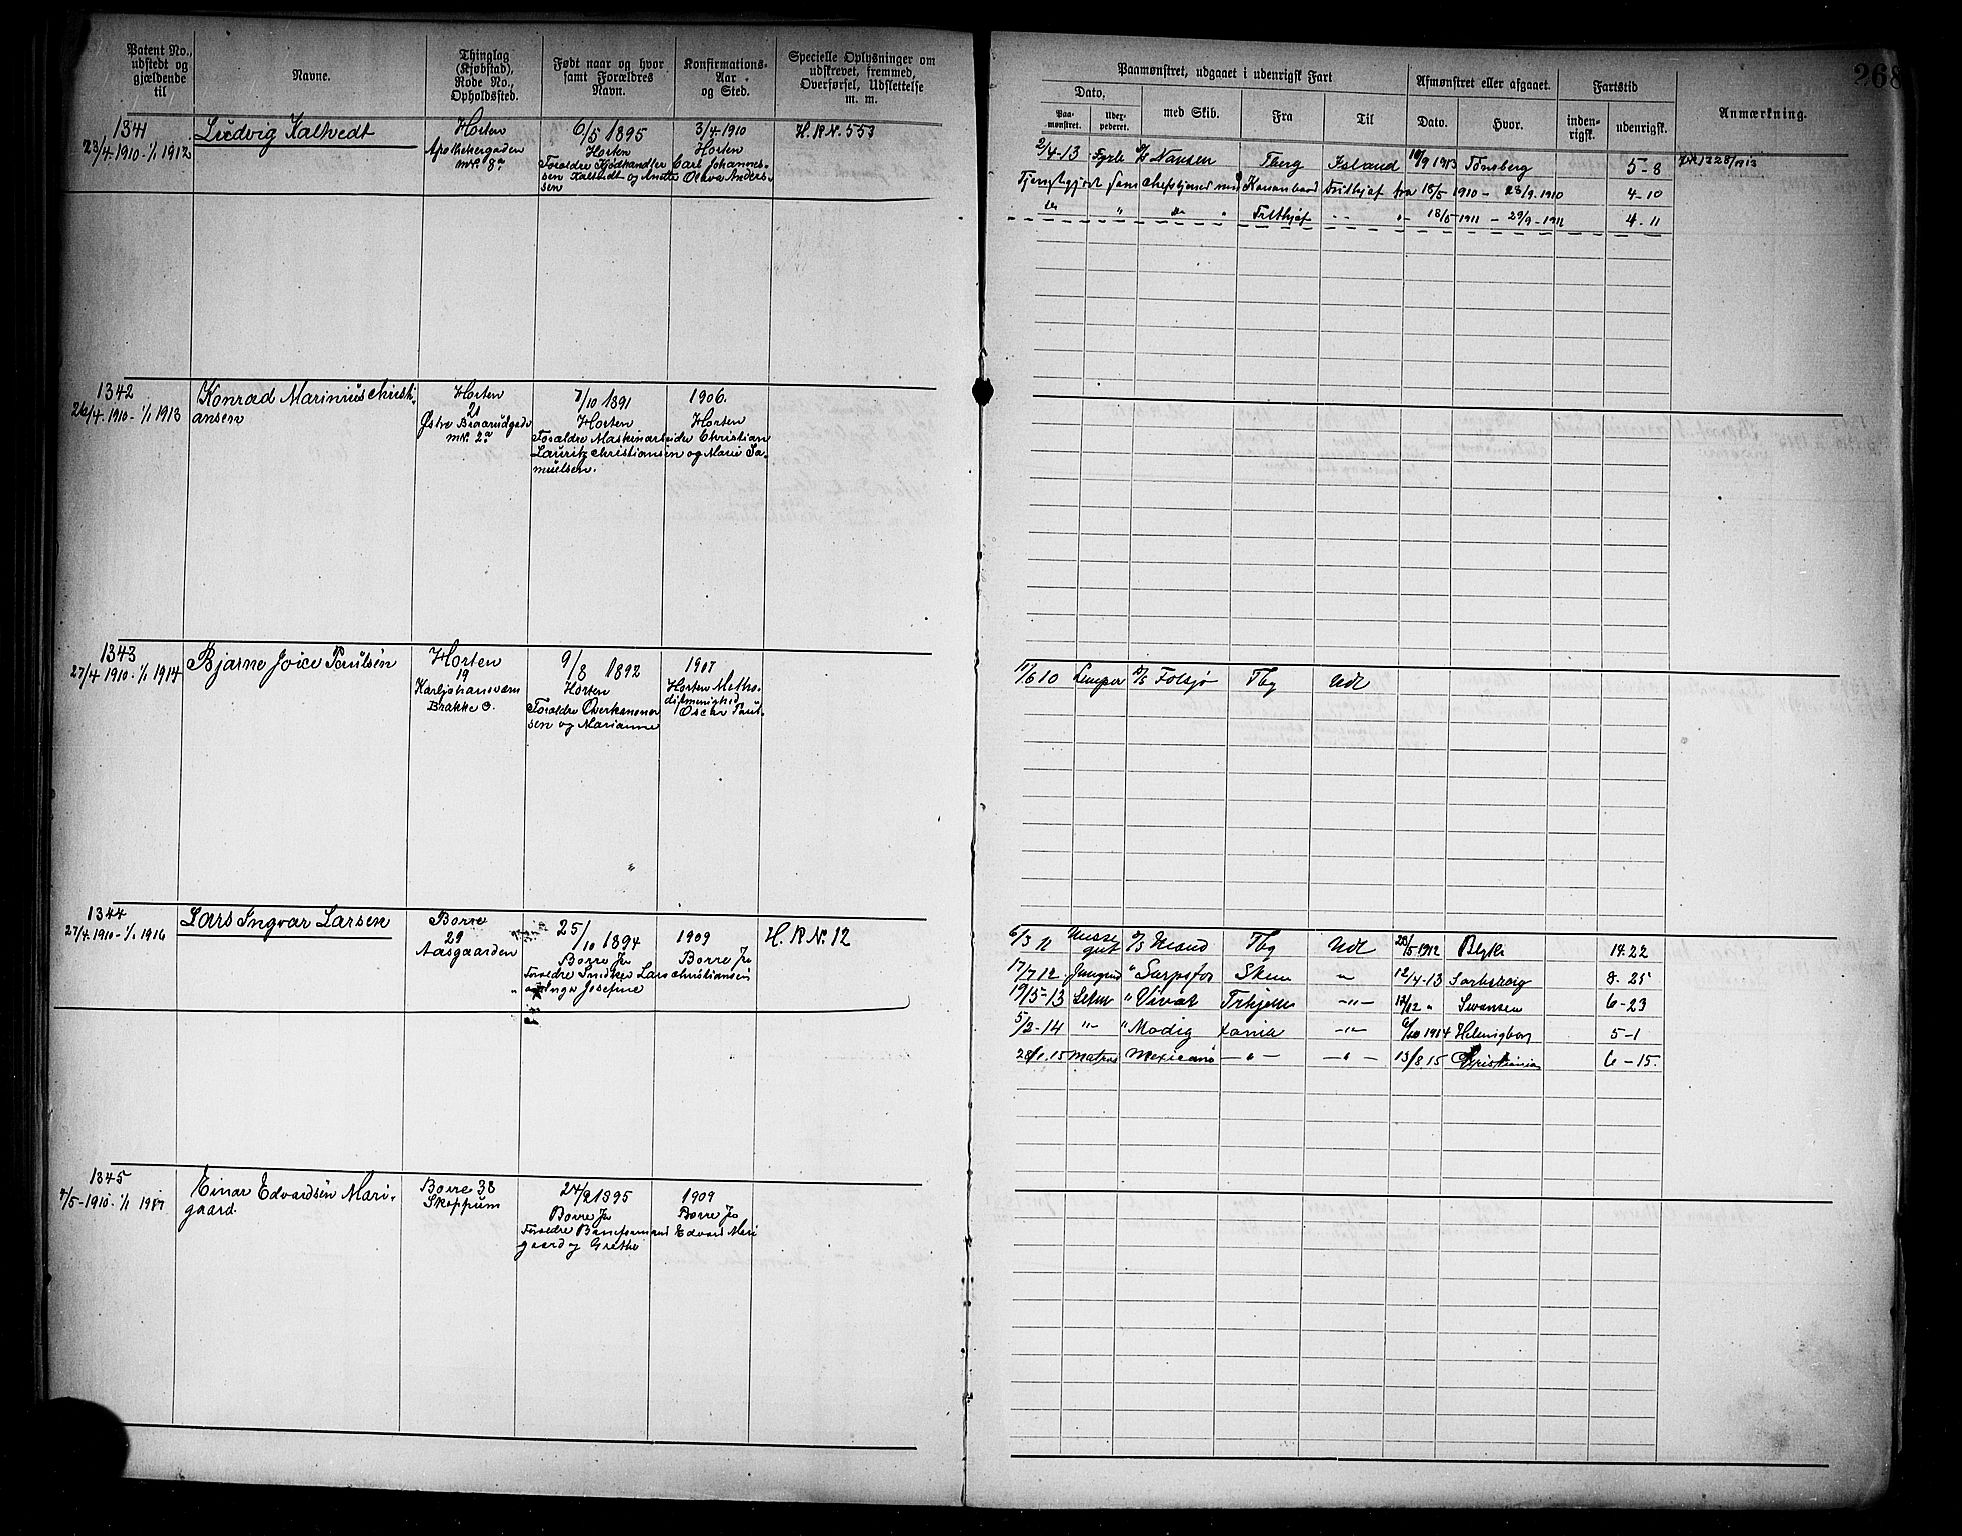 268
Patent No.,
udstedt og
gjældende
til
Navne.
Thinglag
(Kjøbstad),
Rode No.,
Opholdssted.
Født naar og hvor
samt Forældres
Navn.
Konfirmations-
Aar
og Sted.
Specielle Oplysninger om
udskrevet, fremmed,
Overførsel, Udslettelse
m. m.
Paamønstret, udgaaet i udenrigsk Fart
Dato.
Paa-
mønstret.
med Skib.
Fra
Til
Afmønstret eller afgaaet.
Dato.
Hvor.
Fartstid
inden-
rigsk.
udenrigsk.
Anmærkning.
1341
23/4.1910-1/1 1912
Ludvig Kalhvedt
Horten
Apothekergaden
mN. 8a
6/5 1895
Horten
Forældre Kjødhandler Carl Johannes-
sen Kalhvedt og Anette Olava Anders-
sen
3/4.1910
Horten
H. R N. 553
2/4-13 Nansen Tberg Island 10/9 1913 Tönsberg 5-8
Frithjof fra 18/5 1910 - 28/9.1910 4-10
Fritthjof 18/5 1911 - 29/9-1911 4.11
1342
26/4.1910-1/1 1913
Konrad Marinius Christi-
ansen
Horten
21
Østre Braarudgade
mN. 2a
7/10 1891
Horten
Forældre Maskinarbeider Christian
Lauritz Christiansen og Marie Sa-
muelsen.
1906.
Horten
1343
27/4.1910-1/1 1914
Bjarne Joice Paulsen
Horten
19
Karljohansværn
Brakke O.
9/8 1892
Horten
Forældre Overkanoner Oscar Paul-
sen og Marianne
1907
Horten Metho-
distmenighed
11/6 10 Lemper Folsjø Tbg Udl
1344
27/4.1910-1/1 1916
Lars Ingvar Larsen
Borre
29
Aasgaarden
25/10 1894
Borre Js
Forældre Snidker Lars Christiansen
og Inga Josefine
1909
Borre Js
H. R N. 12
6/3 11 Messe
gut Maud Tbg Udl 28/5 1912 Blyth 14.22
17/7 12 Jungmd " Sarpsfos Skien " 12/4-13 Sarbsborg 8.25
19/5-13 " Vivat -"- 12/12 " Swansea 6-23
5/2-14 "- " Modig Xania -"- 6/10 1914 Helsingborg 5-1
28/1.15 Matros Mexicano -"- -"- 13/8.15 Christiania 6-15.
1345
4/5-1910-1/1 1917
Einar Edvardsen Mari-
gaard.
Borre 38
Skoppum
24/2 1895
Borre Js
Forældre Baneformand Edvard Mari
gaard og Grethe
1909
Borre Js